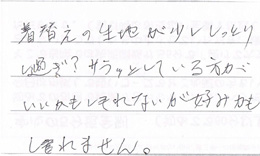 着替えの生地が少ししっとり
過ぎ？サラッとしている方が
いいかもしれないが好みかも
しれません。